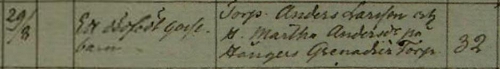 29/8 Ett dödfödt gosse- Torp. Anders Larsson och
barn H. Martha Andersdr på
Hångers Grenadier Torp 32